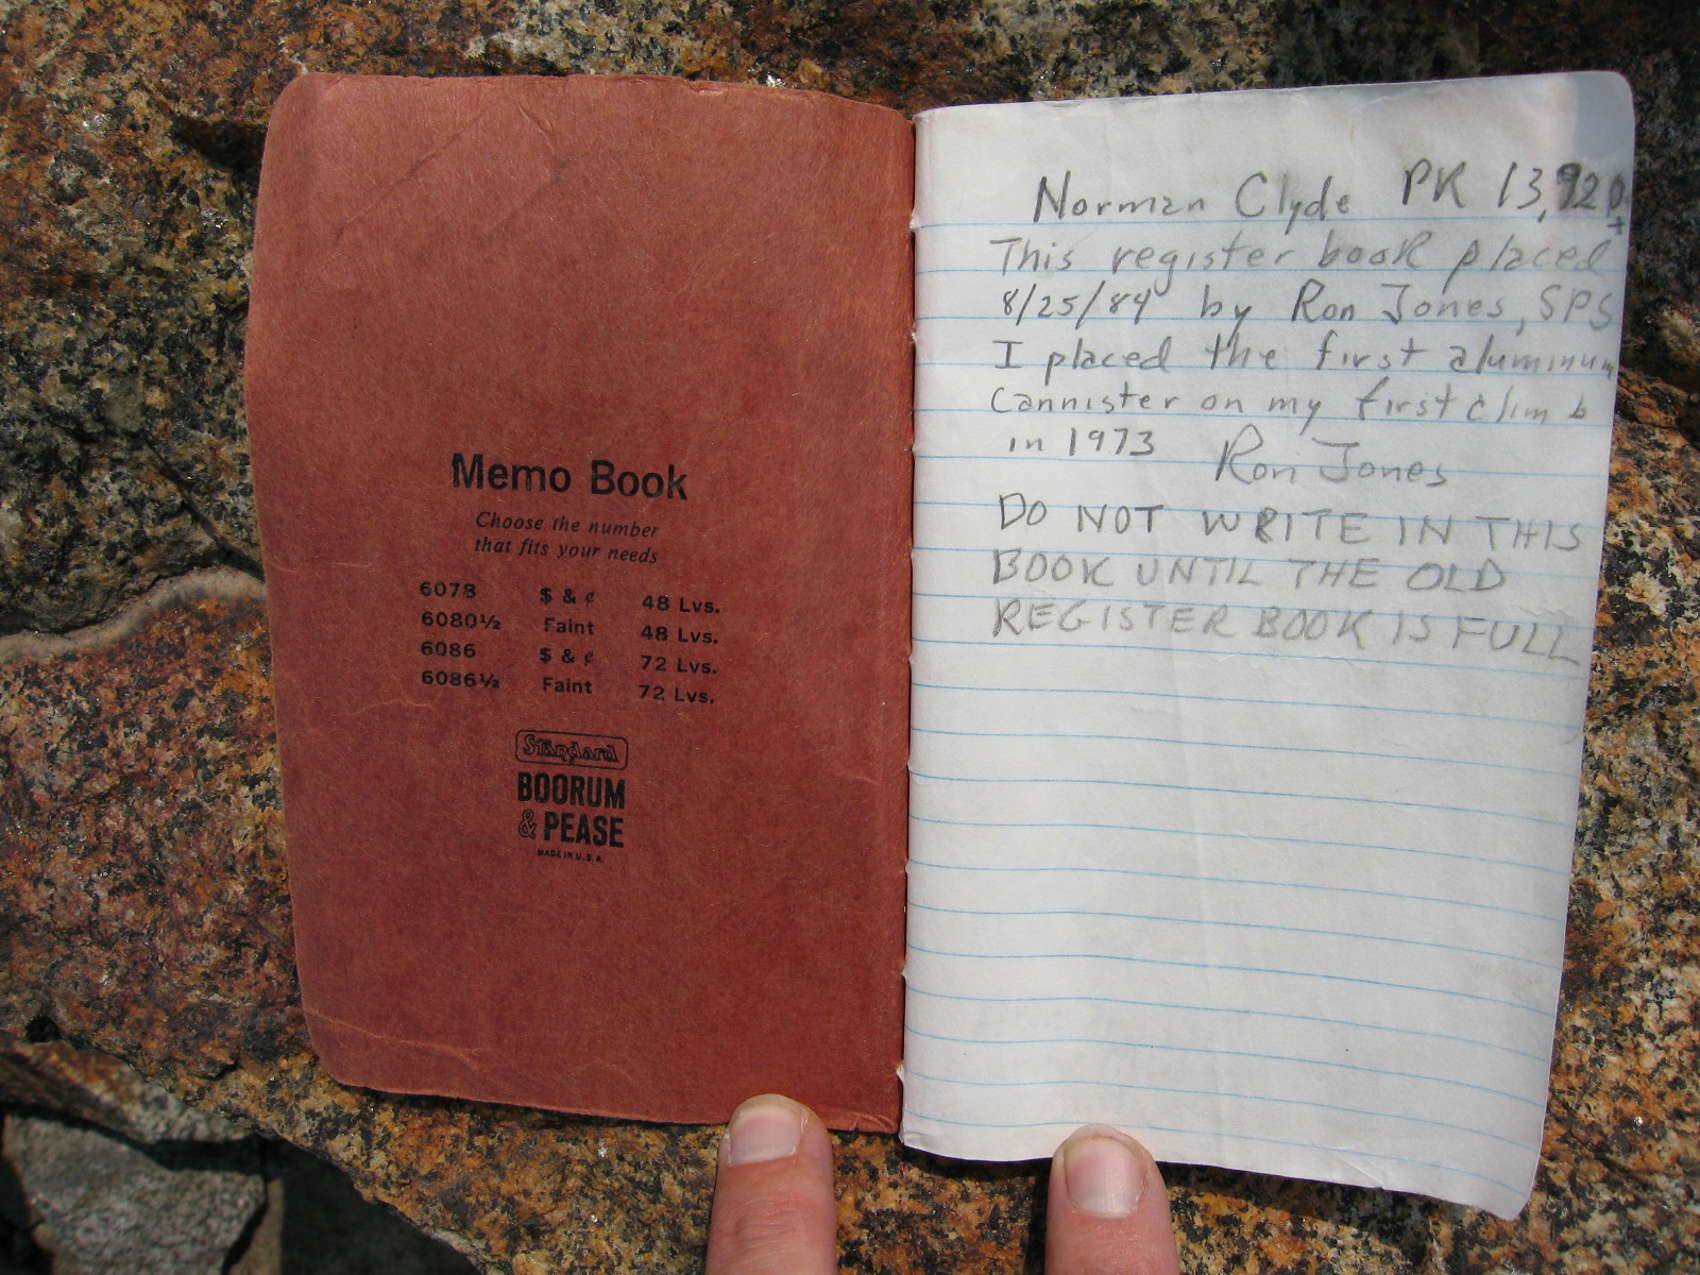 Memo Book
Choose the number
that fits your needs
6078 $ & ¢ 48 Lvs.
6080½ Faint 48 Lvs.
6086 $ & ¢ 72 Lvs.
6086½ Faint 72 Lvs.
Standard
BOORUM
& PEASE
MADE IN U.S.A.
Norman Clyde PK 13,920+
This register book placed
8/25/84 by Ron Jones, SPS
I placed the first aluminum
cannister on my first climb
in 1973 Ron Jones
DO NOT WRITE IN THIS
BOOK UNTIL THE OLD
REGISTER BOOK IS FULL